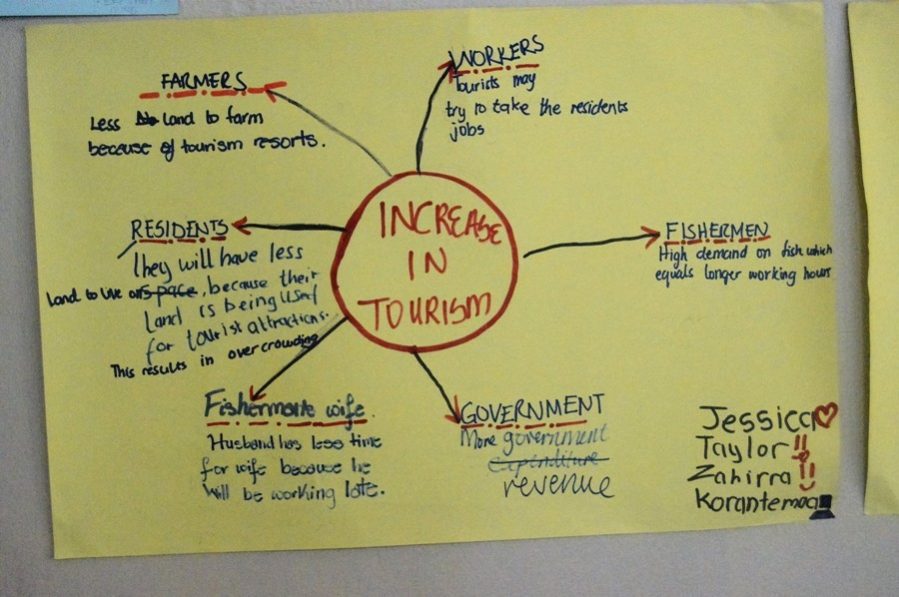 FARMERS
Less land to farm
because of tourism resorts.
WORKERS
Tourists may
try to take the residents
jobs
INCREASE
IN
TOURISM
RESIDENTS
They will have less
Land to live on space, because their
land is being used
for tourist attractions.
This results in overcrowding
FISHERMEN
High demand on fish which
equals longer working hours
Fishermans wife.
Husband has less time
for wife because he
will be working late.
GOVERNMENT
More government
expenditure
revenue
Jessica
Taylor!!
Zahirra!!
Korantemaa